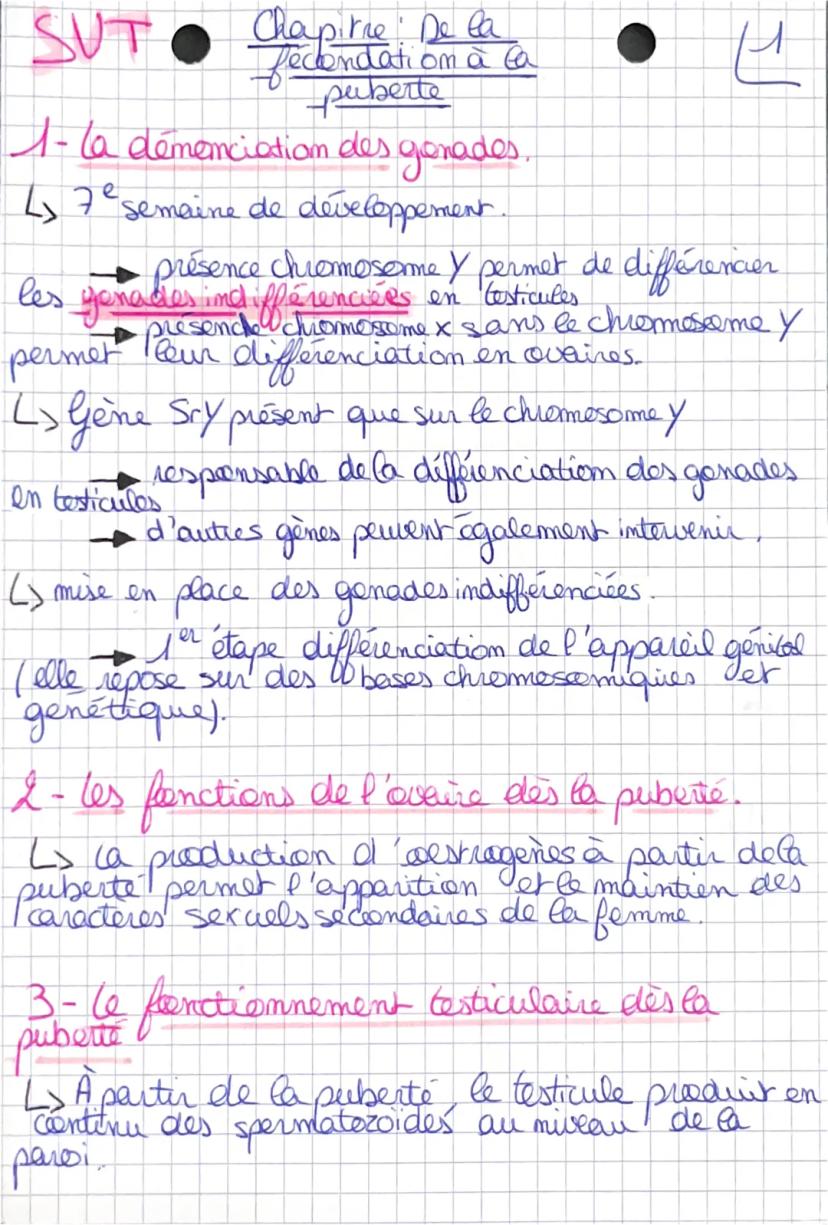 SVT
Chapitre : De la
fécondation à la
puberté
1
1- La démonciation des gonades.
↳ 7e semaine de développement.
→ présence chromosome Y permet de différencier
les gonades indifférenciées en testicules
→ présence chromosome x sans le chromosome Y
permet leur différenciation en ovaires.
↳ Gène SrY présent que sur le chromosome Y
→ responsable de la difféienciation des gonades
en testicules
→ d'autres gènes peuvent également intervenir.
↳ mise en place des gonades indifférenciées.
→ 1er étape différenciation de l'appareil génital
(elle repose sur des bases chromosomiques et
génétique).
2 - Les fonctions de l'ovaire dès la puberté.
↳ La production d'oestrogènes à partir de la
puberté permet l'apparition et le maintien des
caractères sexuels secondaires de la femme.
3 - Le fonctionnement testiculaire dès la
puberté
↳ À partir de la puberté, le testicule produit en
continu des spermatozoïdes au niveau de la
paroi.